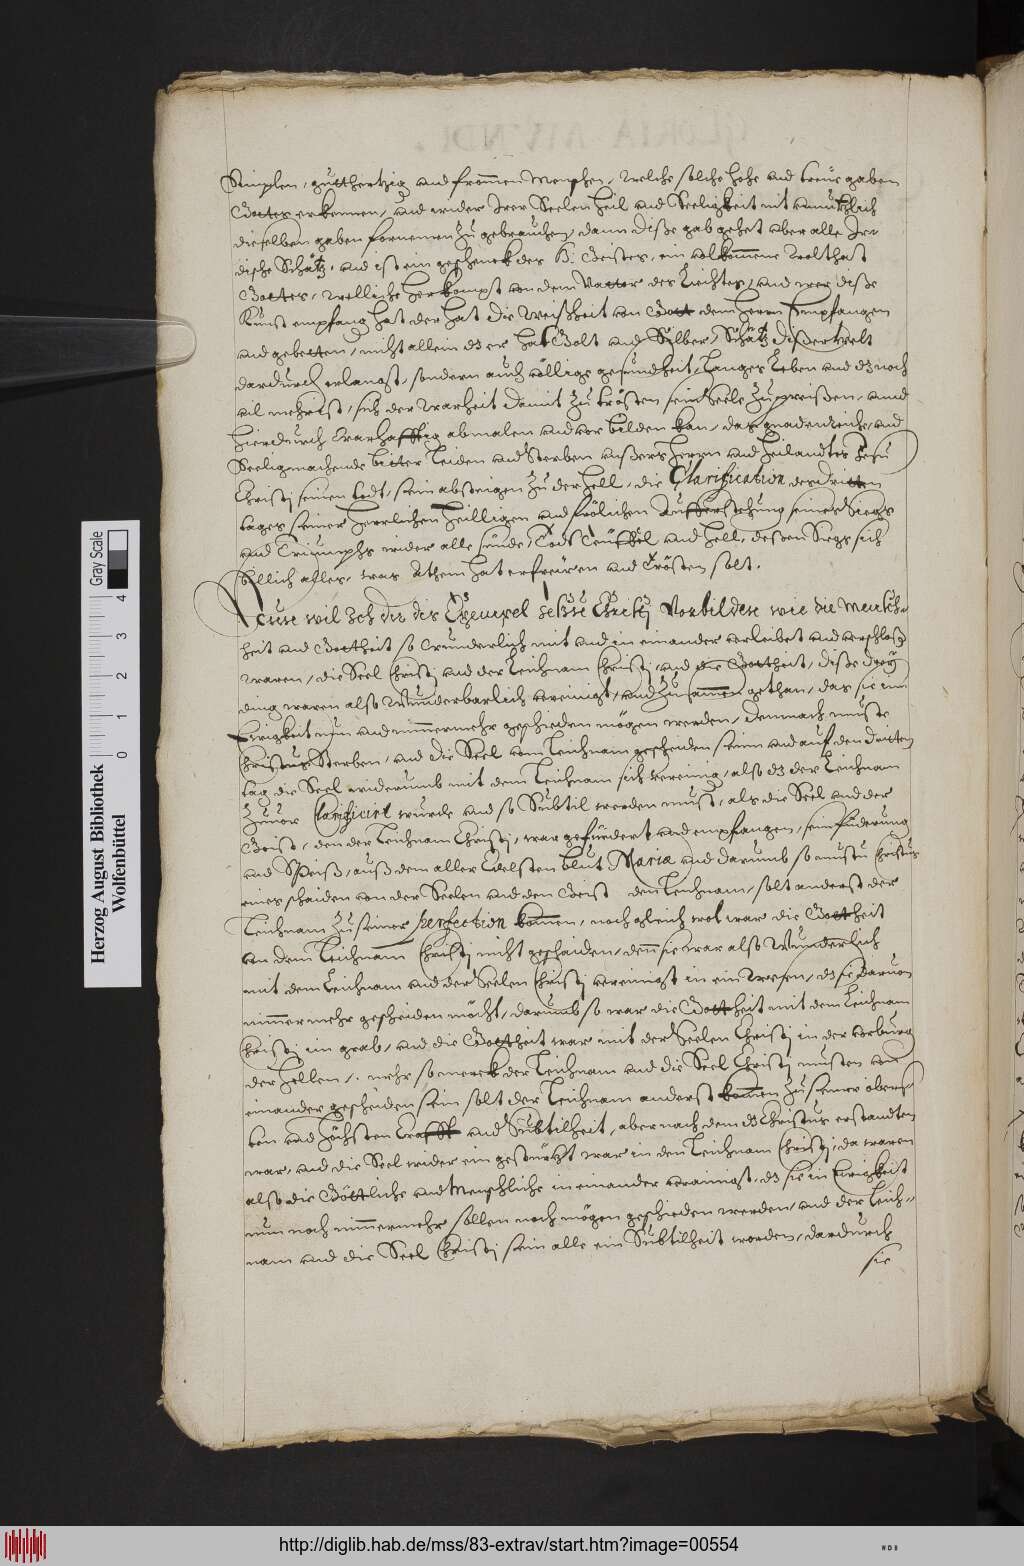 Simplen, guttherzig und frommen Menschen, welche solche hohe und treue gaben
Gottes erkennen, und wider Irer Seelen heil und Seeligkeit nit
dieselben gaben fornemen zu gebrauchen, dann diße gab gehet uber alle Irr
dische Schätz, und ist ein geschenck des H: Geistes, ein volkomene wolthat
Gottes, welliche herkompt von dem Vatter des Liechtes, und wer diße
Kunst empfang hat der hat die Weißheit von Gott dem Herrn Empfangen
und gebetten, nicht allein dz er hat Golt und Silber, Schätz dißer welt
dardurch erlangt, sondern auch völlige gesundheit, Langes Leben und dz noch
vil mehr ist, sich der warheit damit zu trösten sein Seele zu preißen, und
hierdurch warhafftig abmalen und vor bilden kan, das gnadenreiche, und
Seeligmachende bitter leiden und Sterben unßers Herrn und Heilandtes Jesu
Christi seinen todt, sein absteigen zu der hell, die Clarification des dritten
tages seiner herrlichen heilligen und frölichen Aufferstehung seines Siegs
und Triumphs wider alle sünde, Todt Teuffel und hell, deßen Siegs sich
billich alles, was Athem hat erfreüwen und Trösten solt.
Nune wil Ich dir des Exempel Christi Vorbilden wie die Mensch-
heit und Gottheit so wunderlich mit und in einander verleibet und verschloßen
waren, die Seel Christi und der Leichnam Christi, und die Gottheit, diße drey
ding waren also Wunderbarlich vereinigt, und zusammen gethan, das sie in
Ewigkeit nun und nimmermehr gescheiden mögen werden, dennoch muste
Christus Sterben, und die Seel vom Leichnam gescheiden sein und auf den dritten
tag die Seel widerumb mit dem Leichnam sich vereinig, also dz der Leichnam
zuuor Clarificirt wurde und so Subtil werden must, als die Seel und der
Geist, den der Leichnam Christi, war gefürdert und empfangen,
und Speiß, auß dem aller Edelsten blut Mariæ und darumb so must Christus
eines scheiden von der Seelen und dem Geist dem Leichnam, solt anderst der
Leichnam zu seiner perfection komen, noch gleich wol war die Gottheit
von dem Leichnam Christi nicht gescheiden, denn sie war also Wunderlich
mit dem Leichnam und der Seelen Christi vereinigt in ein wesen, dz sie daruon
nimmermehr gescheiden möcht, darumb so war die Gottheit mit dem Leichnam
Christi im grab, und die Gottheit war mit der Seelen Christi in der vorburg
der hellen, mehr so merck der Leichnam und die Seel Christi musten von
einander gescheiden sein solt der Leichnam anderst komen zu seiner obers-
ten und höchsten Crafft und Subtilheit, aber nach dem dz Christus erstandten
war, und die Seel wider ein gestürtzt war in den Leichnam Christi, da waren
also die Göttliche und Menschliche in einander verainigt, dz sie in Ewigkeit
nun noch nimmermehr sollen noch mögen gescheiden werden, und der Leich-
nam und die Seel Christi sein alle ein Subtilheit worden, dardurch
sie
Herzog August Bibliothek
Wolfenbüttel
0 1 2 3 4
Gray Scale
http://diglib.hab.de/mss/83-extrav/start.htm?image=00554